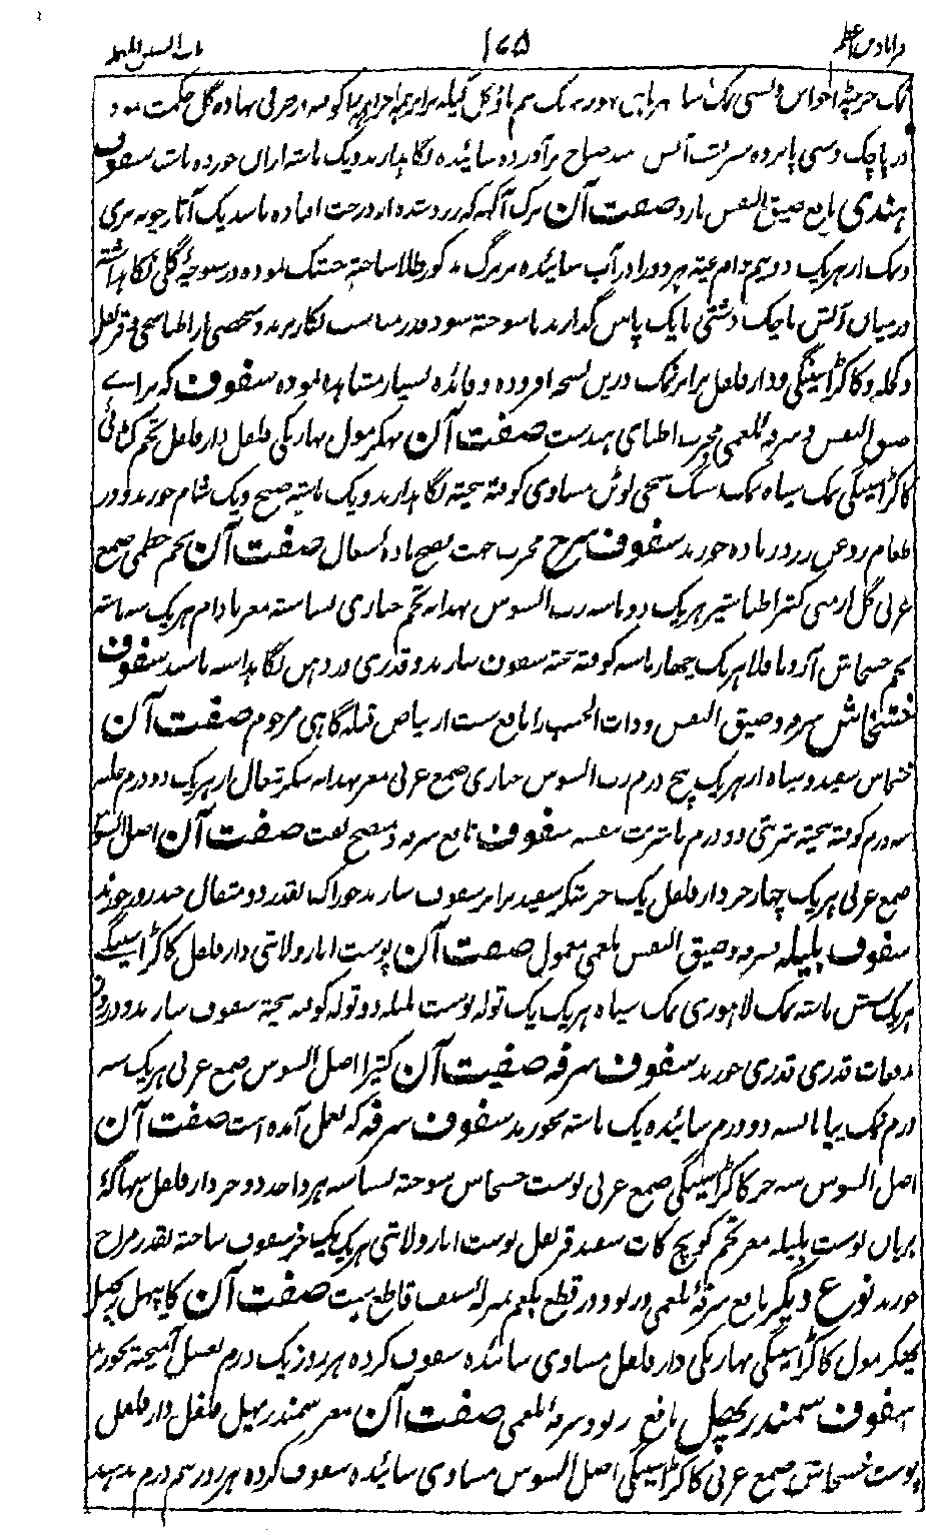 قرابادین اعظم ۱۷۵ باب السین المهمله
نمک
در پاچک دستی آتش برآورده سائیده نگاهدارند و یک ماشه ازان خورده باشند سفوف
هندی نافع ضیق النفس بارد صفت آن برگ آکهه که زرد شده از درخت افتاده باشد یک آثار
و نمک از هریک دو نیم دام هر دو را در آب سائیده بر برگ مذکور طلا ساخته خشک نموده در سبوچه گلی نگاهداشته
درمیان آتش پاچک دشتی تا یک پاس گذارند تا سوخته شود قدر مناسب بکار برند و شخصی از اطبا سجی و قرنفل
و کاکڑاسینگی و دارفلفل برابر نمک درین نسخه افزوده و فائده بسیار مشاهده نموده سفوف که برای
ضیق النفس و سرفه بلغمی مجرب اطبای هندست صفت آن پهکرمول بهارنگی فلفل دارفلفل تخم کٹائی
کاکڑاسینگی نمک سیاه نمک سنگ سجی لوٹن مساوی کوفته بیخته نگاهدارند و یک ماشه صبح و یک شام خورند و در
طعام روغن زرد زیاده خورند سفوف سرخ مجرب جهت نضج ماده سعال صفت آن تخم خطمی صمغ
عربی گل ارمنی کتیرا طباشیر هریک دو ماشه رب السوس بهدانه تخم خبازی نشاسته مغز بادام هریک سه ماشه
تخم خشخاش آرد باقلا هریک چهار ماشه کوفته بیخته سفوف سازند و قدری در دهن نگاهداشته باشند سفوف
خشخاش سرفه و ضیق النفس و ذات الجنب را نافع ست از بیاض قبله گاهی مرحوم صفت آن
خشخاش سفید و سیاه از هریک پنج درم رب السوس خبازی صمغ عربی مغز بهدانه شکر تیغال از هریک دو درم
سه درم کوفته بیخته شربتی دو درم با شربت بنفشه سفوف نافع سرفه و منضج نفث صفت آن اصل السوس
صمغ عربی هریک چهار جز دارفلفل یک جز شکر سفید برابر سفوف سازند خوراک بقدر دو مثقال چند روز خورند
سفوف بلیله سرفه و ضیق النفس بلغمی معمول صفت آن پوست انار ولایتی دارفلفل کاکڑاسینگی
هریک شش ماشه نمک لاهوری نمک سیاه هریک یک توله پوست بلیله دو توله کوفته بیخته سفوف سازند و در روز
بدفعات قدری قدری خورند سفوف سرفه صفت آن کتیرا اصل السوس صمغ عربی هریک سه
درم نمک دو درم سائیده یک ماشه بخورند سفوف سرفه که بعمل آمده است صفت آن
اصل السوس سه جز کاکڑاسینگی صمغ عربی پوست خشخاش سوخته نشاسته هر واحد دو جز دارفلفل سهاگه
بریان پوست بلیله مغز تخم کونچ کات سفید قرنفل پوست انار ولایتی هریک یک جز سفوف ساخته بقدر مزاج
خورند نوع دیگر نافع سرفه بلغمی و ربو و در قطع بلغم بمنزله سیف قاطع ست صفت آن کایپهل
پهکرمول کاکڑاسینگی بهارنگی دارفلفل مساوی سائیده سفوف کرده هر روز یک درم بعسل آمیخته بخورند
سفوف سمندر پهل نافع ربو و سرفه بلغمی صفت آن مغز سمندر پهل فلفل دارفلفل
پوست خشخاش صمغ عربی کاکڑاسینگی اصل السوس مساوی سائیده سفوف کرده هر روز نیم درم بدهند